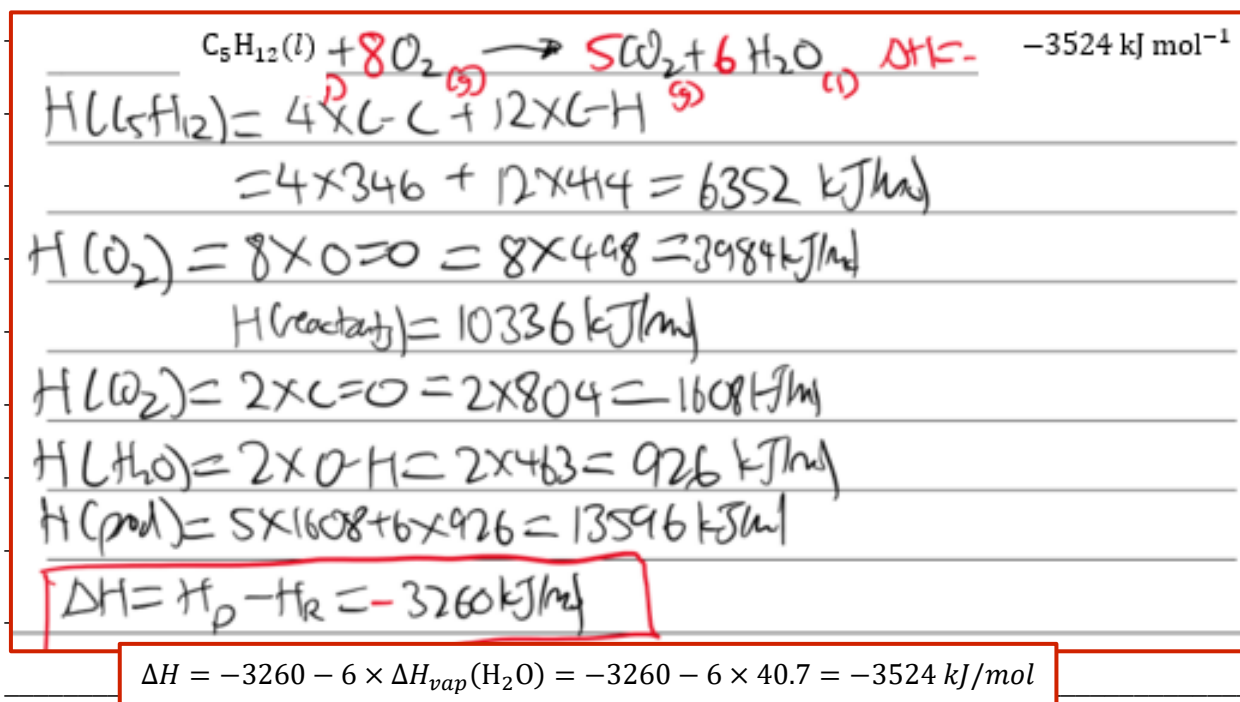 C₅H₁₂(l) + 8O₂ → 5CO₂ + 6H₂O ΔH = - −3524 kJ mol⁻¹
(l) (g) (g) (l)
H(C₅H₁₂) = 4×C-C + 12×C-H
= 4×346 + 12×414 = 6352 kJ/mol
H(O₂) = 8×O=O = 8×498 = 3984 kJ/mol
H(reactants) = 10336 kJ/mol
H(CO₂) = 2×C=O = 2×804 = 1608 kJ/mol
H(H₂O) = 2×O-H = 2×463 = 926 kJ/mol
H(prod) = 5×1608+6×926 = 13596 kJ/mol
ΔH = H_P - H_R = -3260 kJ/mol
ΔH = −3260 − 6 × ΔH_vap(H₂O) = −3260 − 6 × 40.7 = −3524 kJ/mol